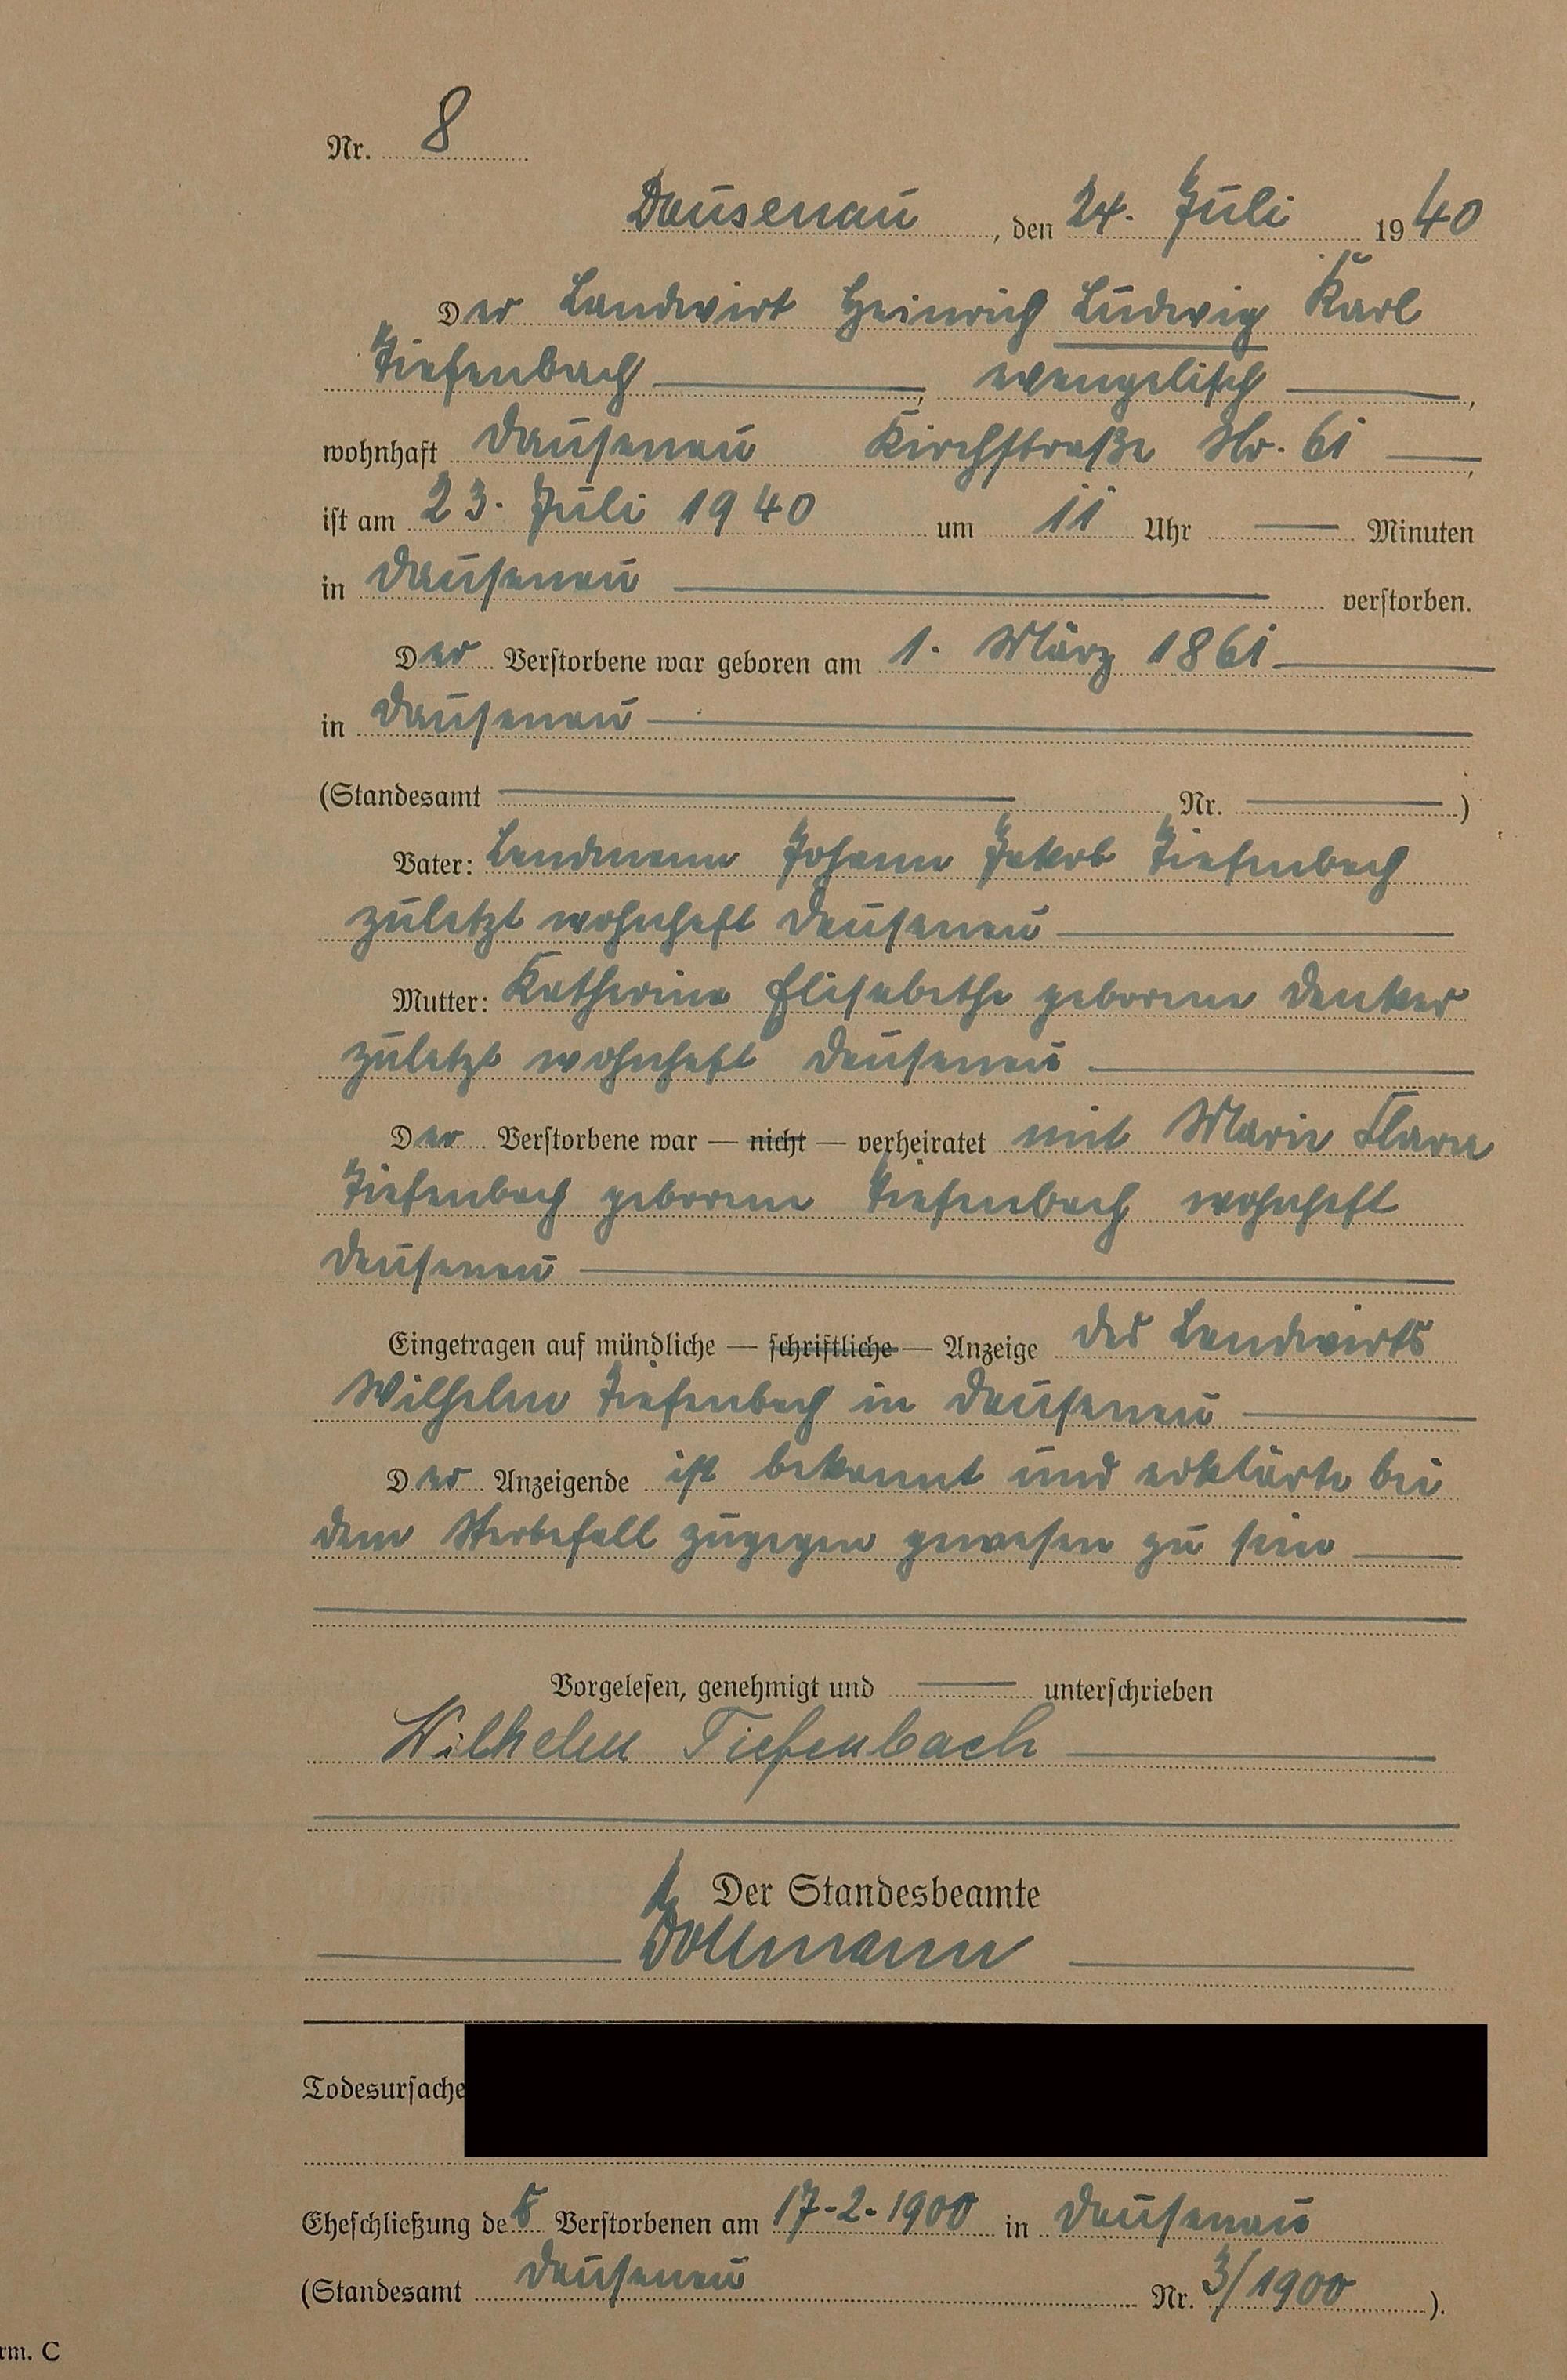 Nr. 8
Dausenau, den 24. Juli 1940
Der Landwirt Heinrich Ludwig Karl
Tiefenbach, evangelisch,
wohnhaft Dausenau Kirchstraße Nr. 61,
ist am 23. Juli 1940 um 11 Uhr Minuten
in Dausenau verstorben.
Der Verstorbene war geboren am 1. März 1861
in Dausenau
(Standesamt Nr. )
Vater: Landmann Johann Jakob Tiefenbach
zuletzt wohnhaft Dausenau
Mutter: Katharina Elisabethe geborene Denker
zuletzt wohnhaft Dausenau
Der Verstorbene war — nicht — verheiratet mit Marie Klara
Tiefenbach geborene Tiefenbach wohnhaft
Dausenau
Eingetragen auf mündliche — schriftliche — Anzeige des Landwirts
Wilhelm Tiefenbach in Dausenau
Der Anzeigende ist bekannt und erklärte bei
dem Sterbefall zugegen gewesen zu sein
Vorgelesen, genehmigt und unterschrieben
Wilhelm Tiefenbach
Der Standesbeamte
Dollmann
Todesursache
Eheschließung des Verstorbenen am 17-2-1900 in Dausenau
(Standesamt Dausenau Nr. 3/1900 ).
rm. C